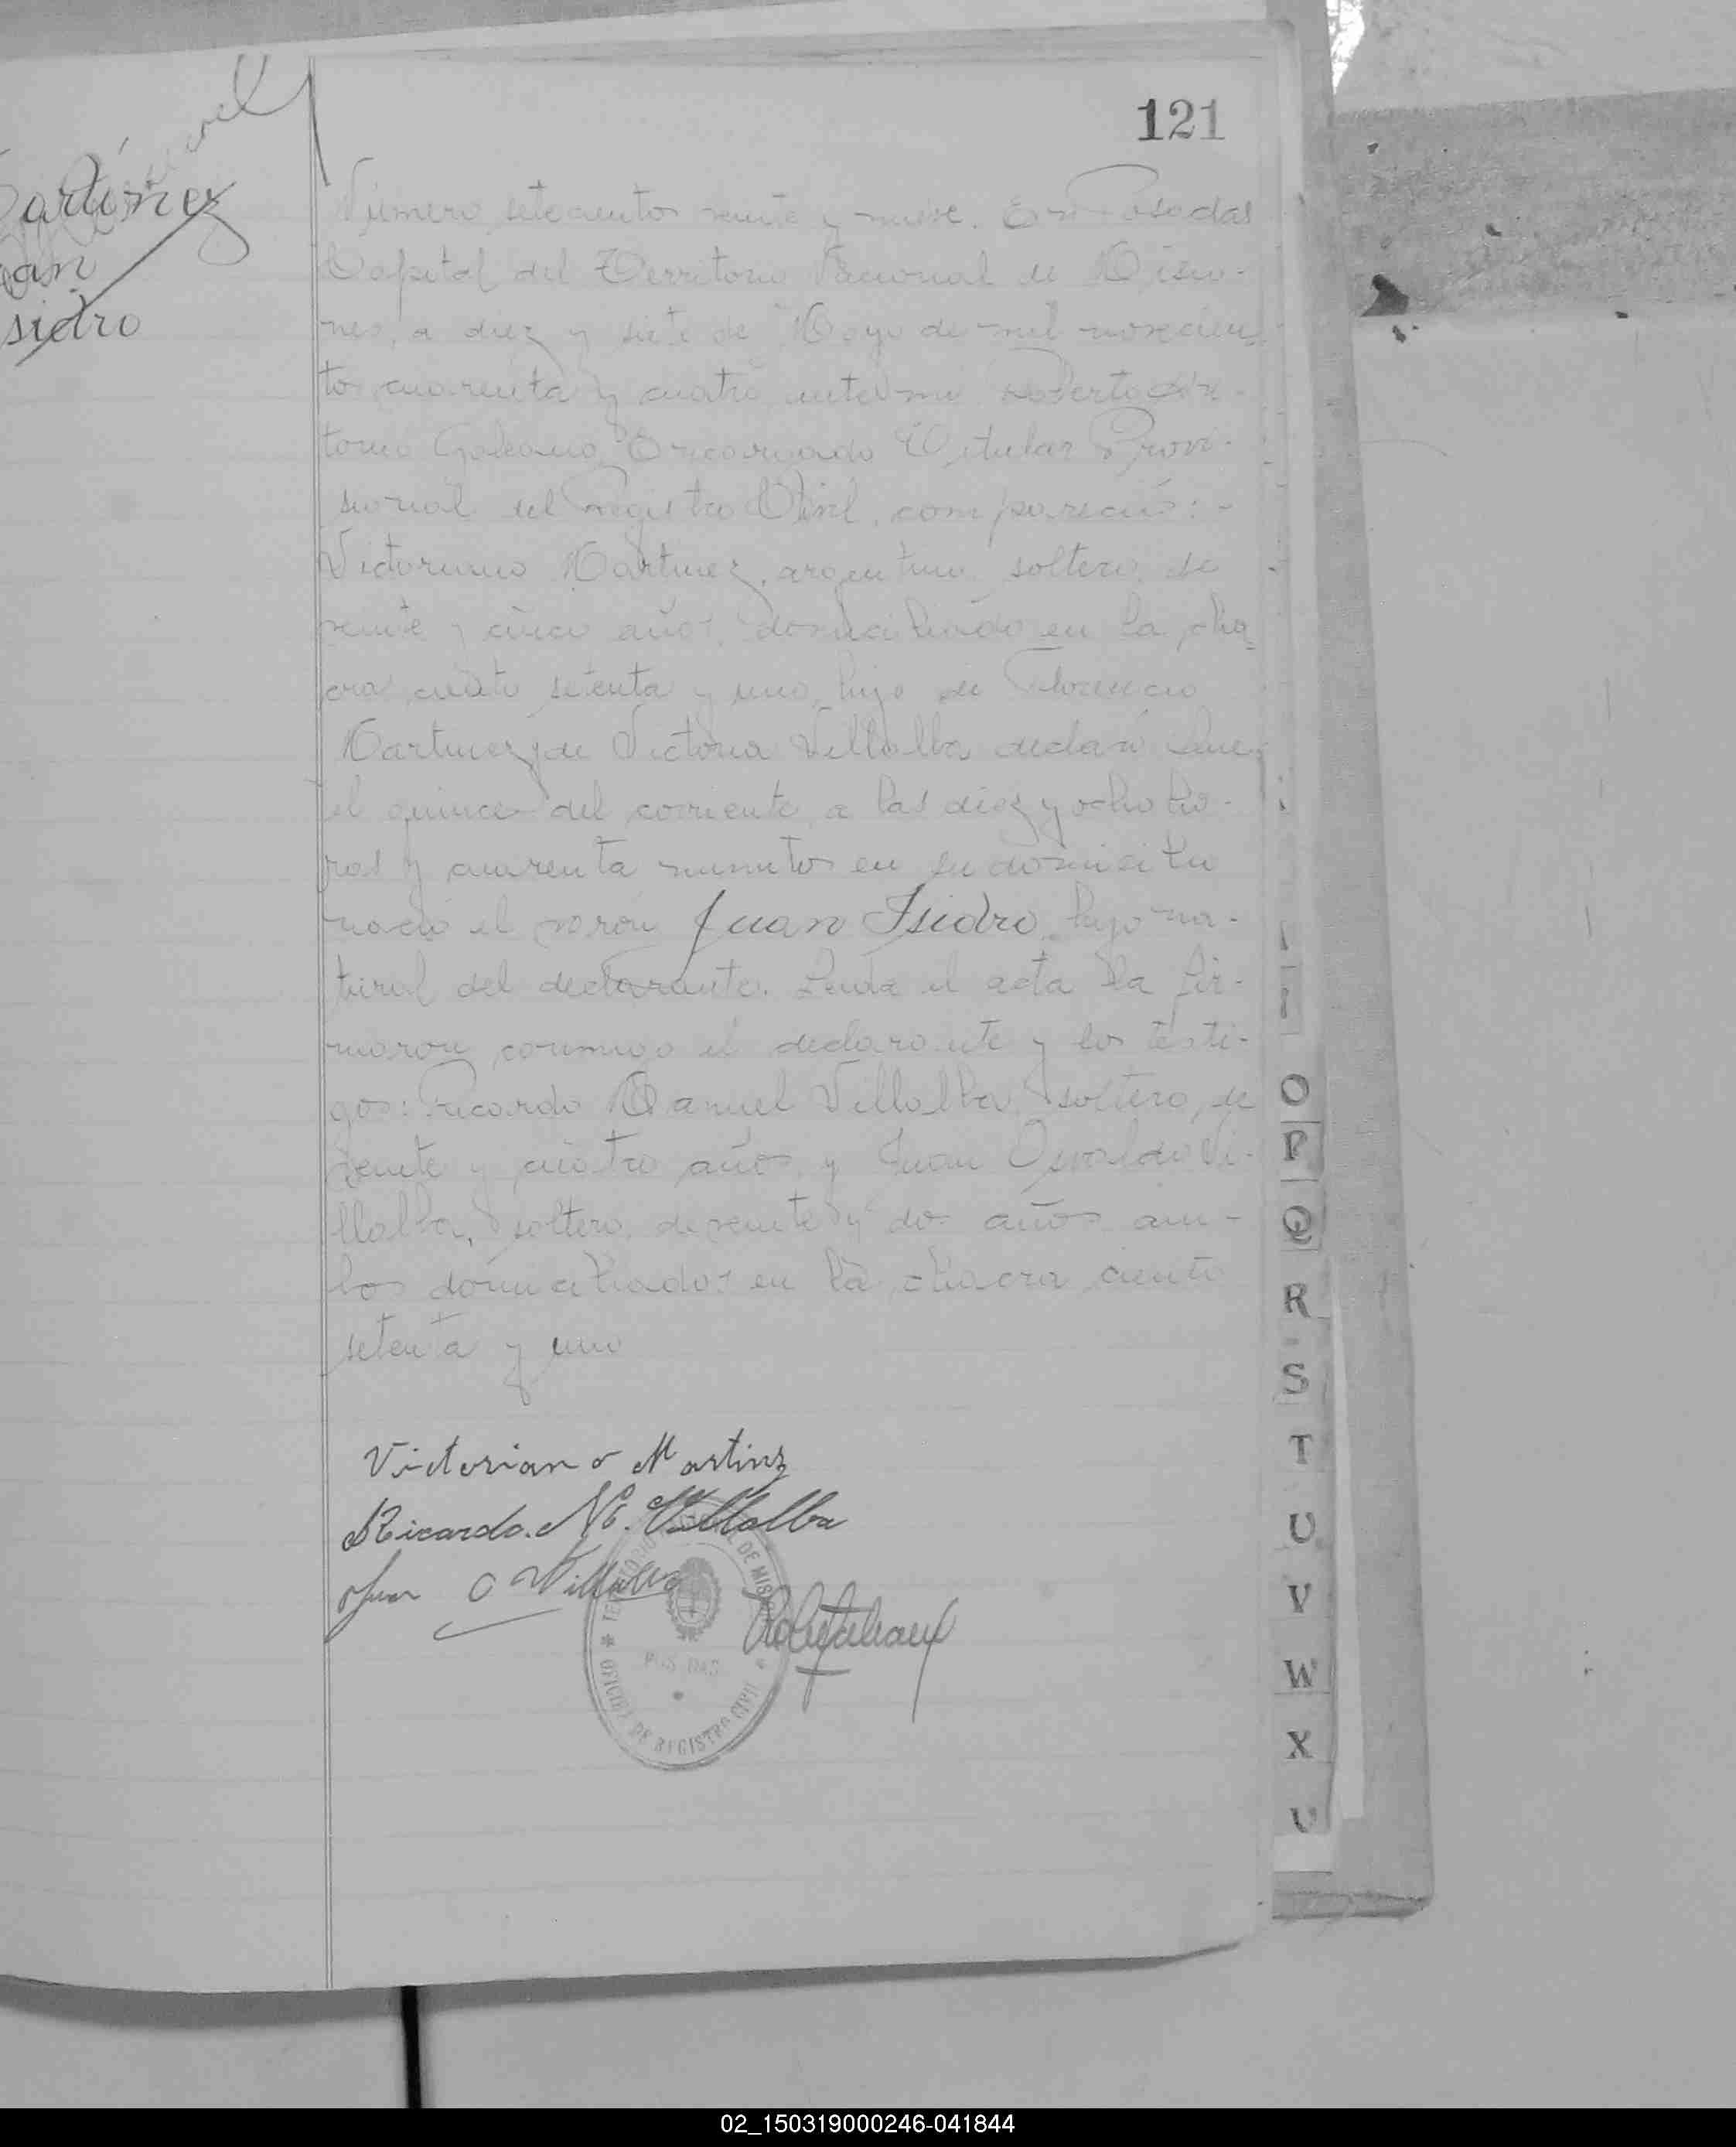 121
Martínez
Juan
Isidro
Número setecientos veinte y nueve. En Posadas
Capital del Territorio Nacional de Misio-
nes, a diez y siete de Mayo de mil novecien-
tos cuarenta y cuatro ante mi Roberto An-
tonio Galeano, Encargado Titular Provi-
sional del Registro Civil, compareció: -
Victoriano Martinez, argentino, soltero, de
veinte y cinco años, domiciliado en la cha
cra ciento setenta y uno, hijo de Florencio
Martinez y de Victoria Villalba declaró Que
el quince del corriente, a las diez y ocho ho-
ras y cuarenta minutos en su domicilio
nació el varón Juan Isidro, hijo na-
tural del declarante. Leida el acta la fir-
maron conmigo el declarante y los testi-
gos: Ricardo Manuel Villalba, soltero, de
veinte y cuatro años y Juan Osvaldo Vi-
llalba, soltero, de veinte y dos años am-
bos domiciliados en la chacra ciento
setenta y uno
Victoriano Martinz
Ricardo. M. Villalba
Juan O Villalba
TERRITORIO NACIONAL DE MISIONES
POSADAS
OFICINA DE REGISTRO CIVIL
O
P
Q
R
S
T
U
V
W
X
02_150319000246-041844